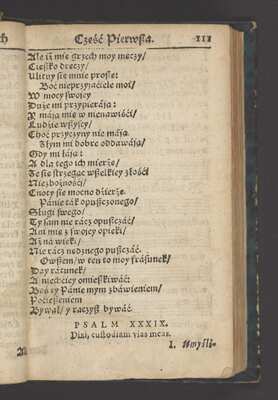 Część Pierwsza. 111
Ale iż mię grzech moy męczy/
Cięszko dręczy/
Ulituy się mnie proszę:
Boć nieprzyiaćiele moi/
W mocy swojey
Duże mi przypieráją:
Y máją mię w nienawiśći/
Ludzie wszyscy/
Choć przyczyny nie máją.
Złym mi dobre oddawáją/
Gdy mi łáją:
A dla tego ich mierżę/
Że się strzegąc wszelkiey złośći
Niezbożnośći/
Cnoty się mocno dźierżę.
Pánie ták opuszczonego/
Sługi swego/
Ty sam nie rácz opuszczáć/
Ani mię z swojey opieki/
Aż ná wieki/
Nie rácz nędznego puszczáć.
Owszem/ w ten to moy frásunek/
Day rátunek/
A niechćiey omieszkiwáć:
Bądź ty Pánie mym zbáwieniem/
Pocieszeniem
Bywał/ y rácżysz bywáć.
PSALM XXXIX.
Dixi, custodiam vias meas.
1. Umyśli-